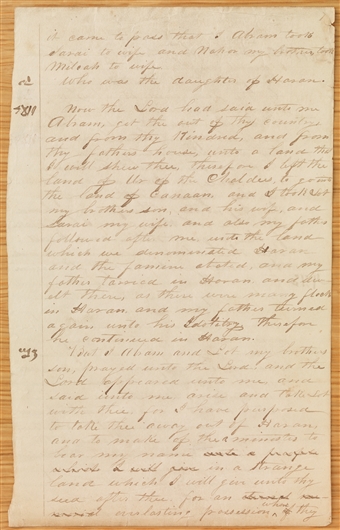 it came to pass that I Abram took
Sarai to wife and Nahor my brother took
Milcah to wife
Who was the daughter of Haran.
Now the Lord had said unto me
Abram, get the out of thy country
and from thy Kindred, and from
thy fathers house, unto a land that
I will shew thee, therefore I left the
land of Ur of the Chaldees to go into
the land of Canaan and I took Lot
my brothers son, and his wife, and
Sarai my wife and also my father
followed after me, unto the land
which we denominated Haran
and the famine abated, and my
father tarried in Haran and dwelt
there, as there were many flocks
in Haran and my father turned
again unto his idolatry therefore
he continued in Haran.
But I Abram and Lot my brothers
son, prayed unto the Lord and the
Lord appeared unto me, and
said unto me arise and take Lot
with thee, for I have purposed
to take thee away out of Haran,
and to make of thee a minister to
bear my name in a strange
land which I will give unto thy
seed after thee, for an
everlasting possession, when they